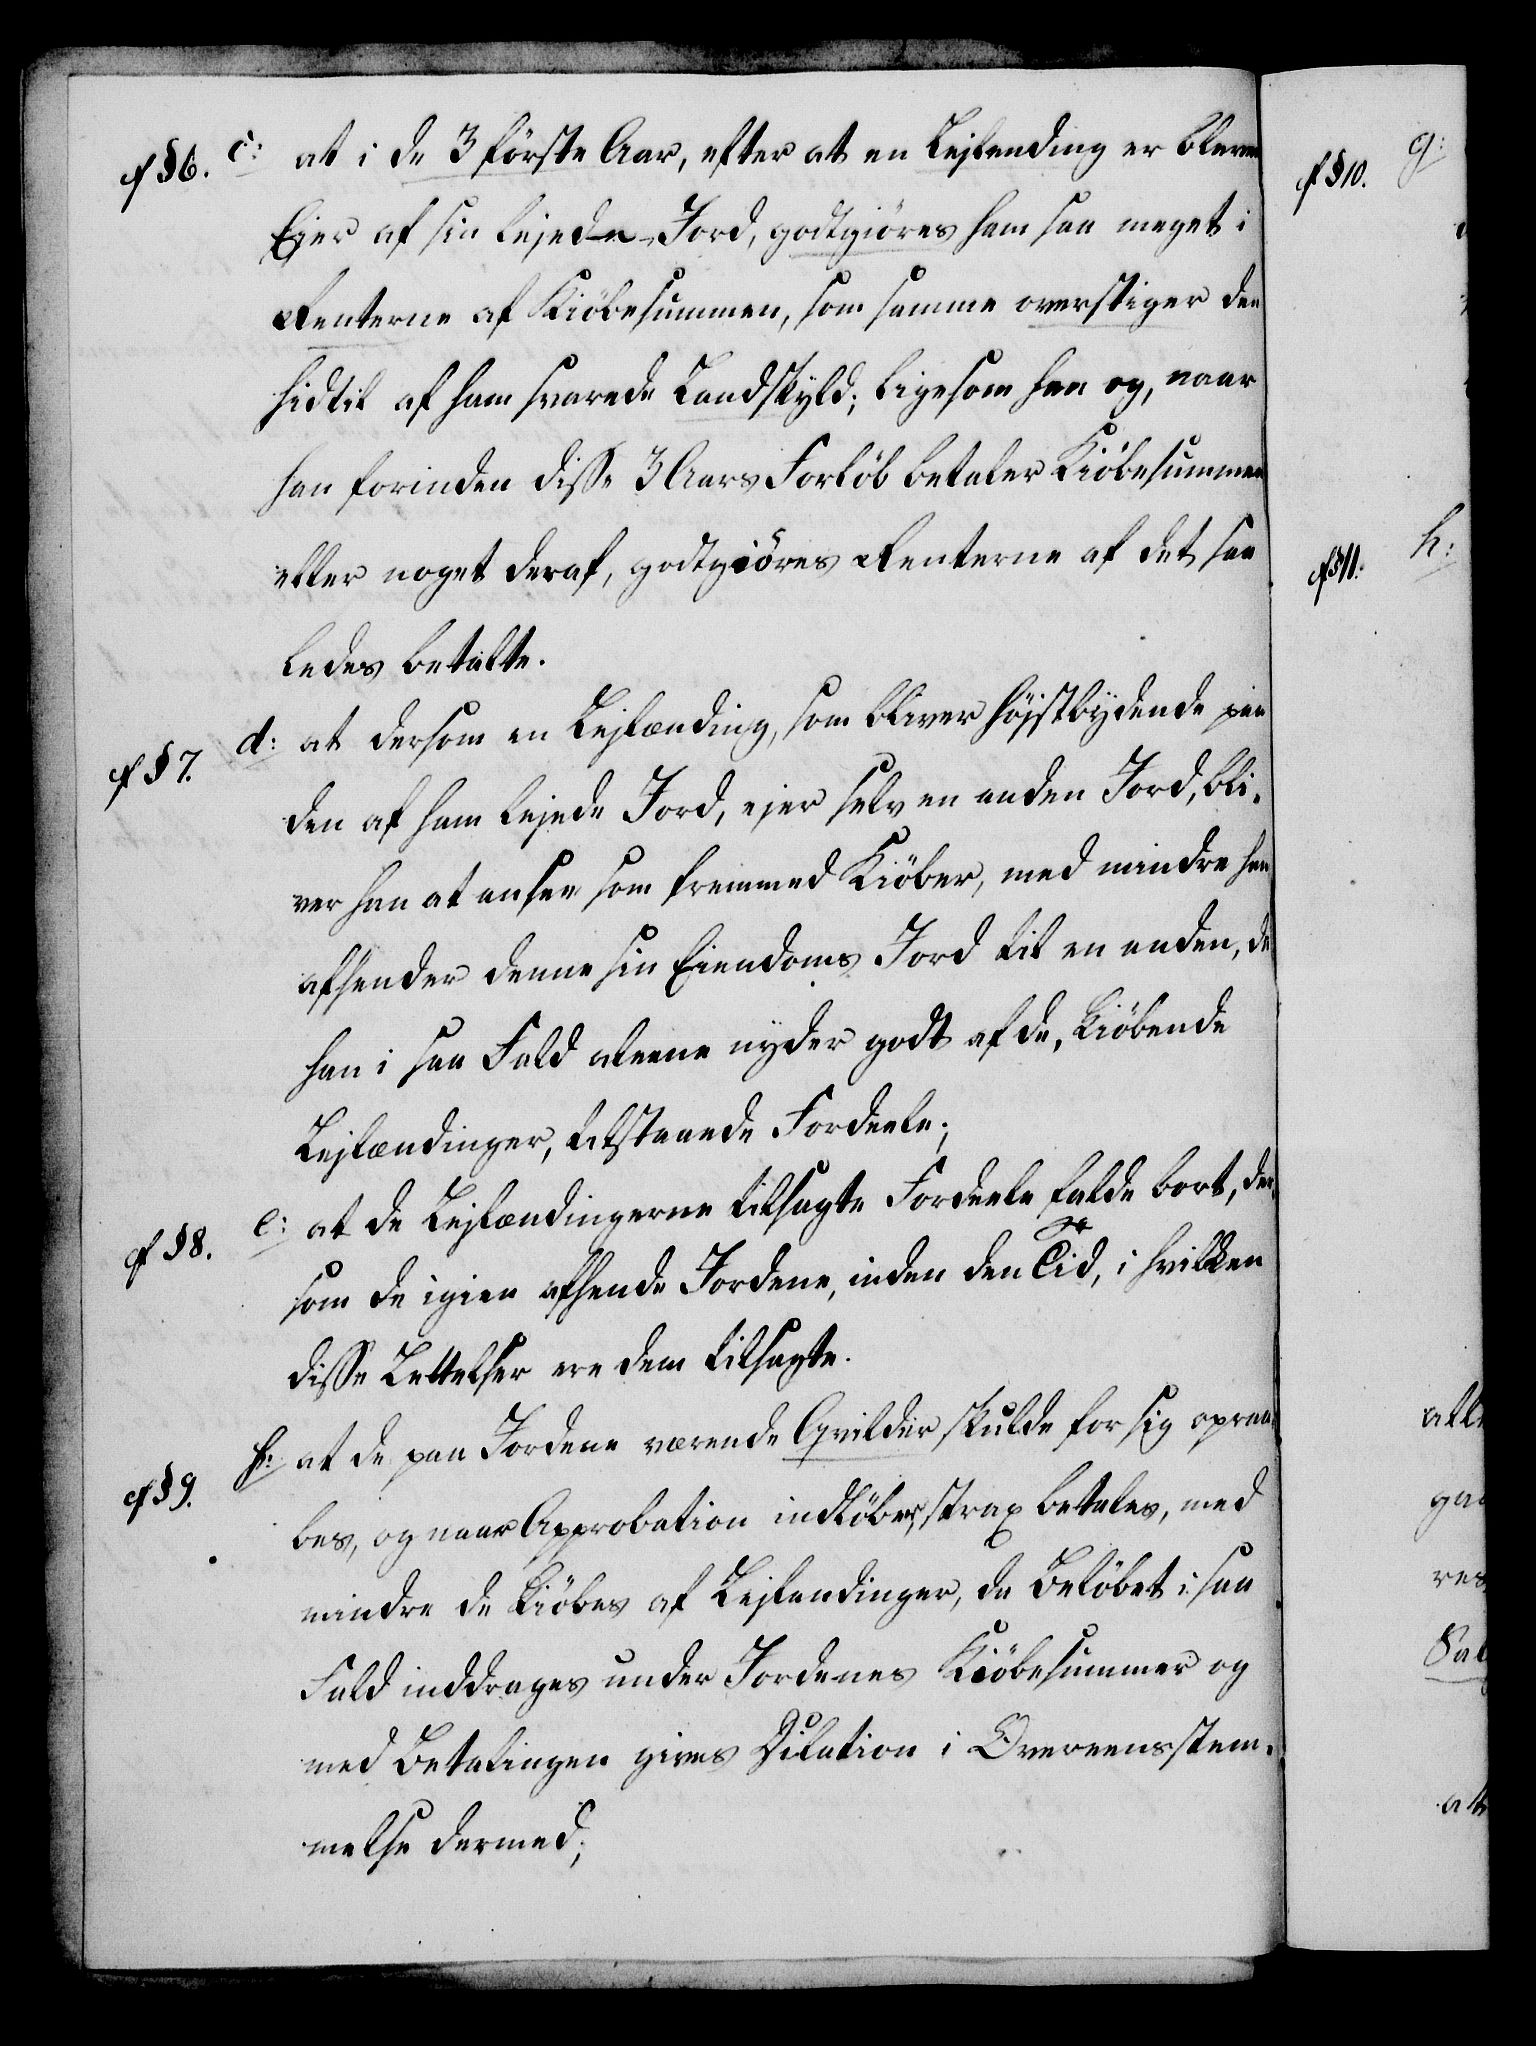 cf §6. c: at i de 3 förste Aar, efter at en Lejlending er bleven
Ejer af sin lejede Jord, godtgiöres ham saa meget i
Renterne af Kiöbesummen, som samme overstiger den
hidtil af ham svarede Landskyld; ligesom han og, naar
han forinden disse 3 Aars Forlöb betaler Kiöbesummen
eller noget deraf, godtgiöres Renterne af det saa
ledes betalte.
cf §7. d: at dersom en Lejlænding, som bliver höjstbydende paa
den af ham lejede Jord, ejer selv en anden Jord, bli-
ver han at ansee som fremmed Kiöber, med mindre han
afhender denne sin Eiendoms Jord til en anden, da
han i saa Fald aleene nyder godt af de, kiöbende
Lejlændinger, tilstaaede Fordeele;
cf §8. e: at de Lejlændingerne tilsagte Fordeele falde bort, der-
som de igien afhende Jordene, inden den Tid, i hvilken
disse Lettelser ere dem tilsagte.
cf §9. f: at de paa Jordene værende Qvilder skulde for sig opraa-
bes, og naar Approbation indlöber, strax betales, med
mindre de kiöbes af Lejlendinger, da Belöbet i saa
Fald inddrages under Jordenes Kiöbesummer og
med Betalingen gives Dilation i Overeensstem-
melse dermed;
cf §10. g:
cf §11. h:
alle
res
Sal